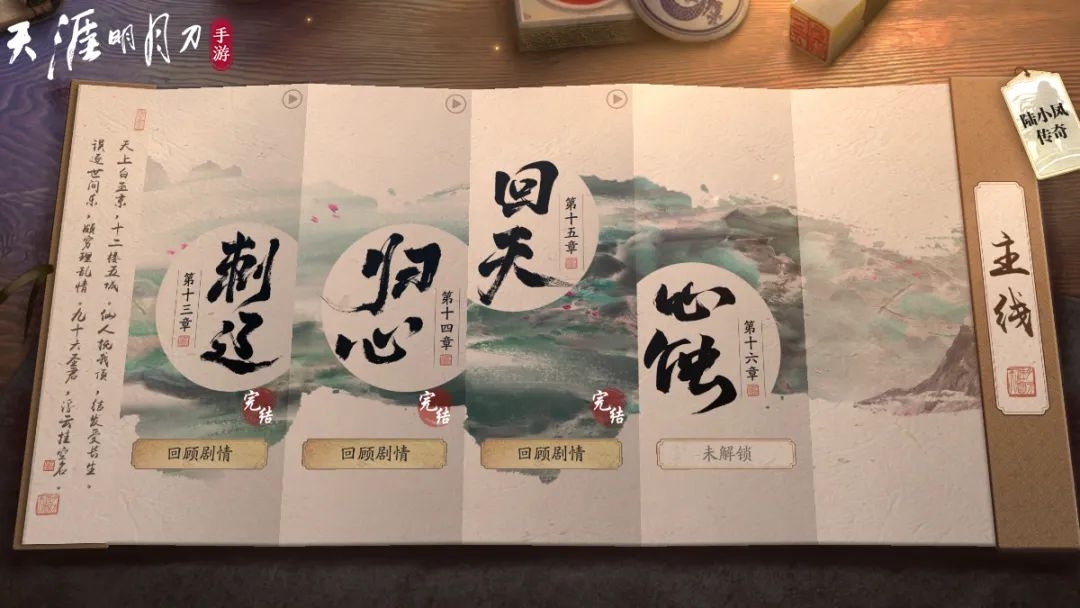 天涯明月刀
手游
陆小凤
传奇
主线
天上白玉京，十二楼五城。仙人抚我顶，结发受长生。
误逐世间乐，颇穷理乱情。九十六圣君，浮云挂空名。
刺辽
第十三章
完结
回顾剧情
归心
第十四章
完结
回顾剧情
回天
第十五章
完结
回顾剧情
心蚀
第十六章
未解锁